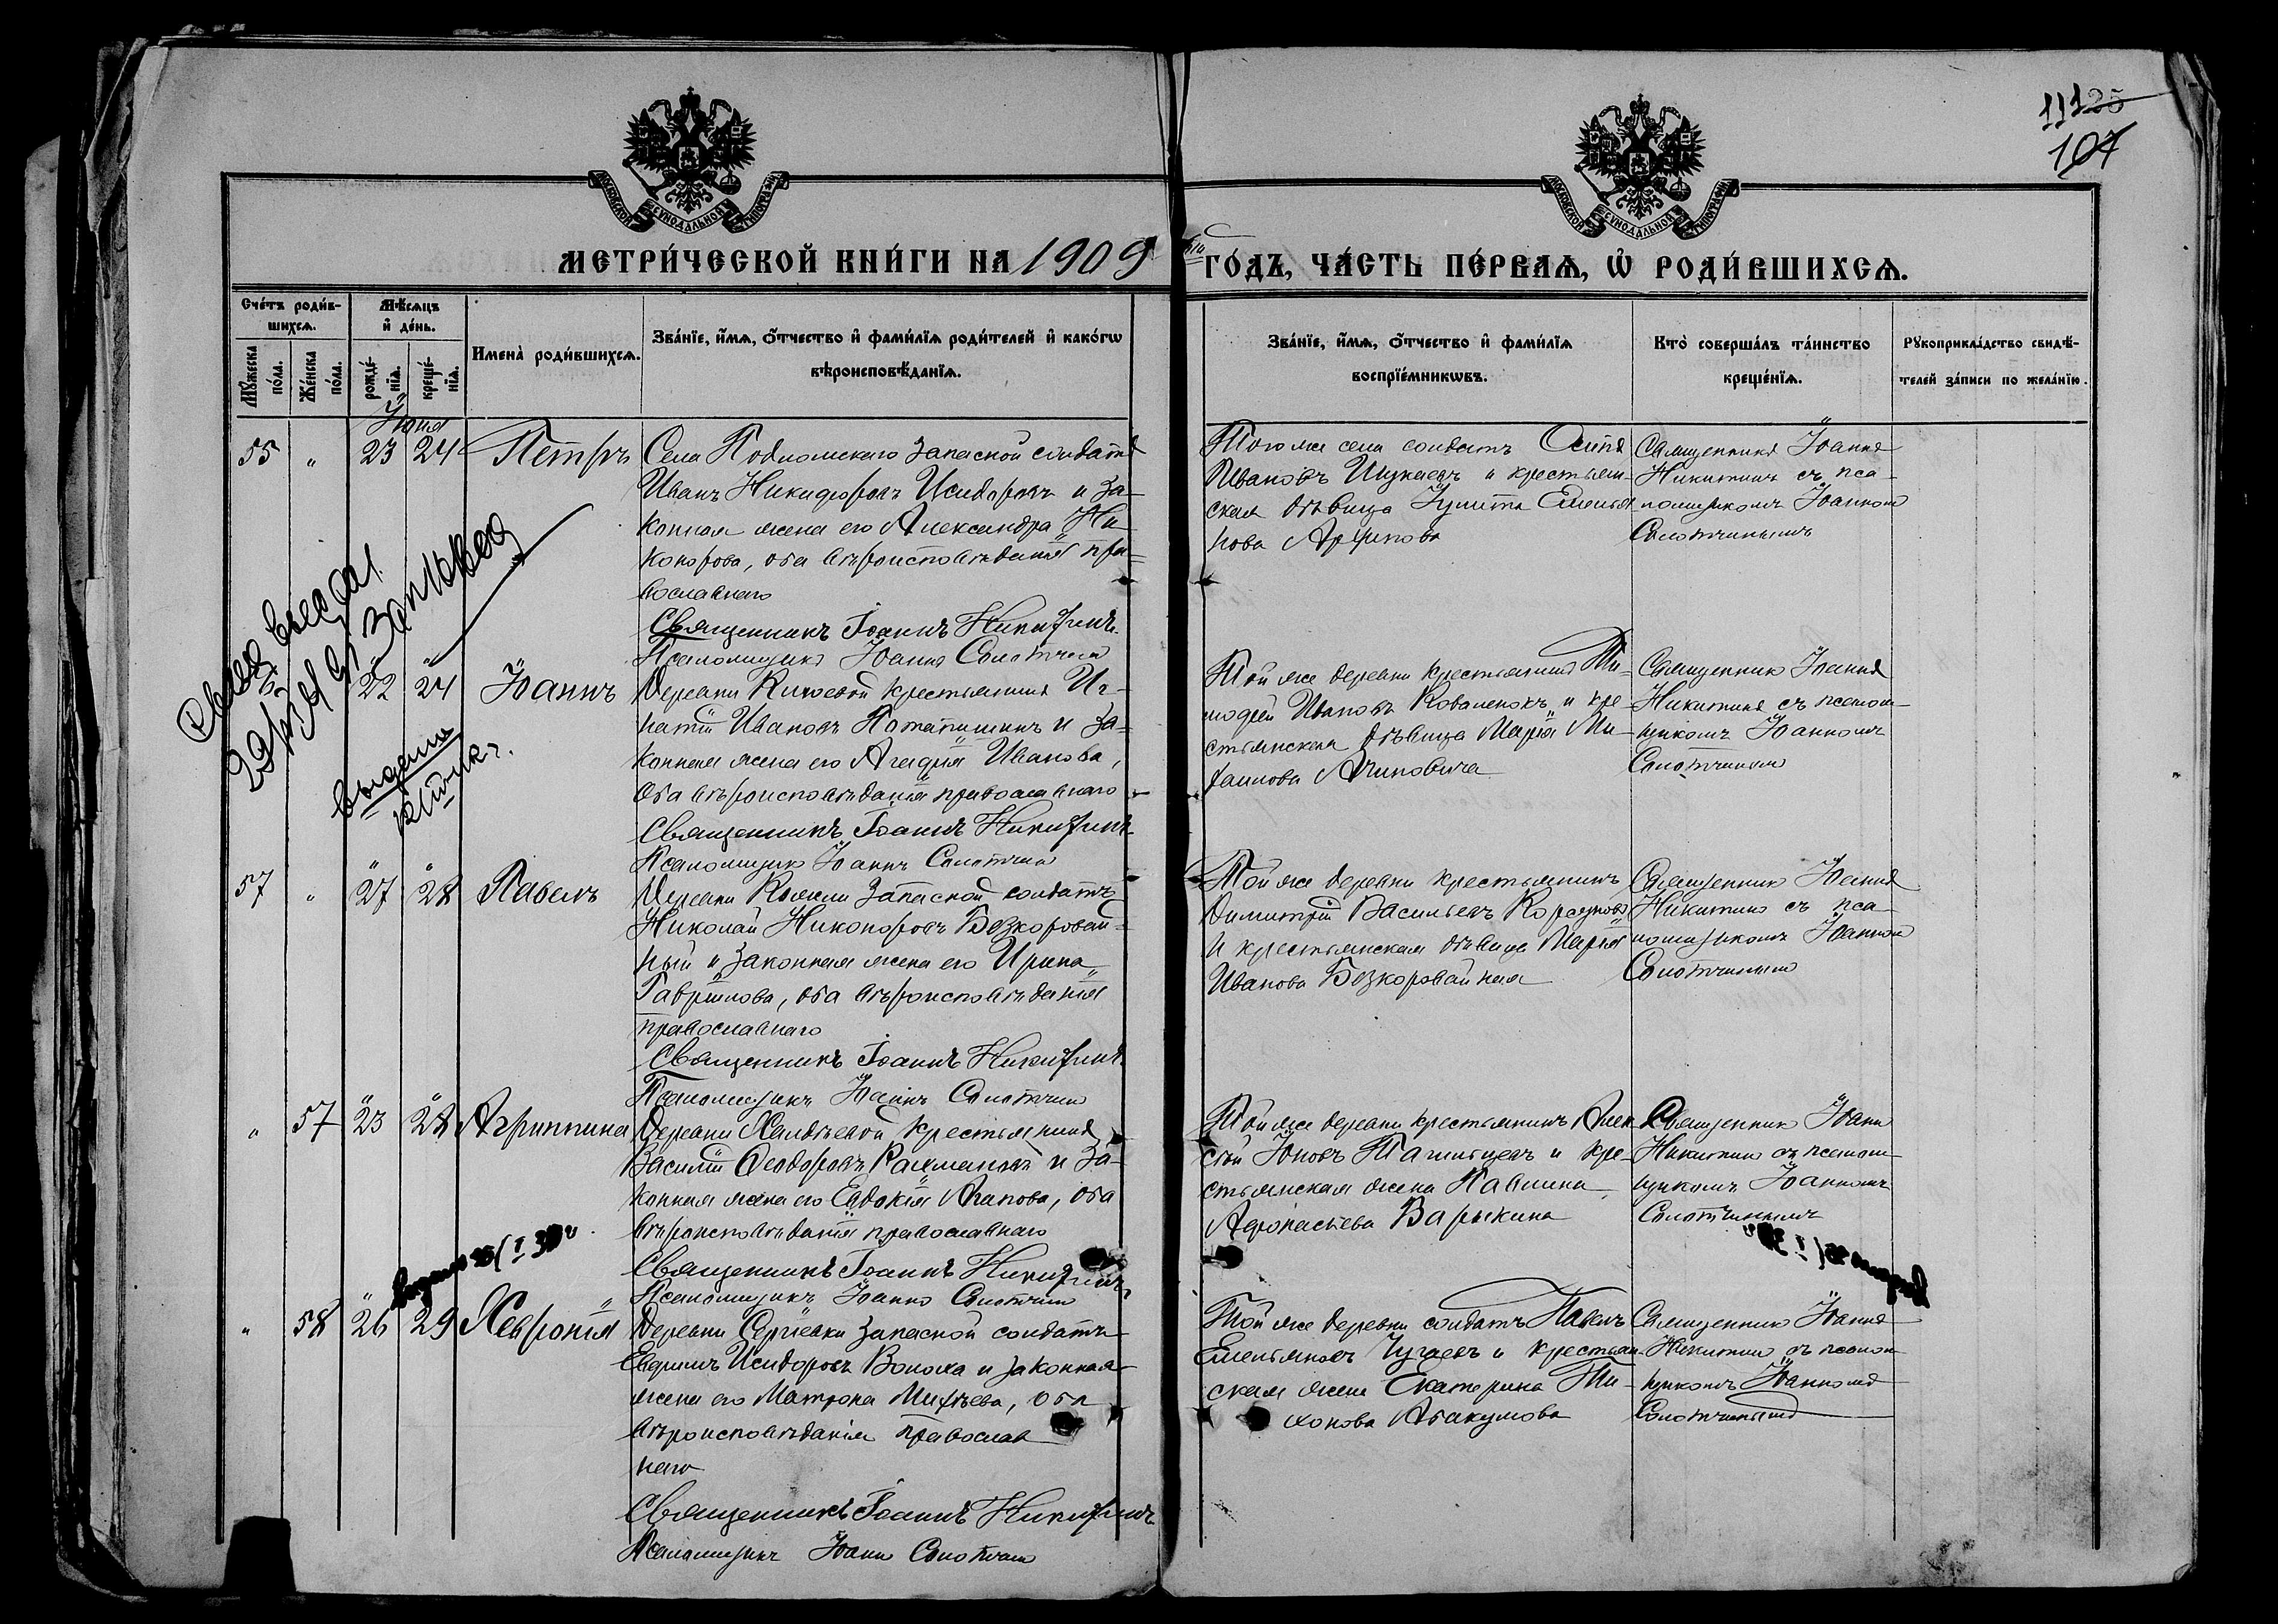 11125
107
МОСКОВСКОЙ СѴНОДАЛЬНОЙ ТИПОГРАФІИ
МОСКОВСКОЙ СѴНОДАЛЬНОЙ ТИПОГРАФІИ
МЕТРИ́ЧЕСКОЙ КНИ́ГИ НА 1909 ГО́ДЪ, ЧА́СТЬ ПЕ́РВАѦ, Ѽ РОДИ́ВШИХСѦ.
Сче́тъ роди́в-
шихсѧ.
Мꙋ́жеска по́ла.
Же́нска по́ла.
Мѣ́сѧцъ
и҆ де́нь.
рожде́-
нїѧ.
креще́-
нїѧ.
Имена̀ роди́вшихсѧ.
Зва́нїе, и҆́мѧ, ѻ҆́тчество и҆ фами́лїѧ роди́телей и҆ како́гѡ
вѣроисповѣ́данїѧ.
Зва́нїе, и҆́мѧ, ѻ҆́тчество и҆ фами́лїѧ
воспрїе́мникѡвъ.
Кто̀ соверша́лъ та́инство
креще́нїѧ.
Рꙋкоприкла́дство свидѣ́-
телей за́писи по жела́нїю.
Іюня
55 " 23 24 Петръ
Села запасной солдатъ
Иванъ Никифоровъ Исидоровъ и за-
конная жена его Александра Ни-
конорова, оба вѣроисповѣданія пра-
вославнаго
Священникъ Іоаннъ Никитинъ
Псаломщикъ Іоаннъ Солотчинъ
Того же села солдатъ
Ивановъ и крестьян-
ская дѣвица Емелья
нова
Священникъ Іоаннъ
Никитинъ съ пса-
ломщикомъ Іоанномъ
Солотчинымъ
22 24 Іоаннъ
выдана
Деревни крестьянинъ Иг-
натій Ивановъ Потапишинъ и за-
конная жена его Агафія Иванова,
оба вѣроисповѣданія православнаго
Священникъ Іоаннъ Никитинъ
Псаломщикъ Іоаннъ Солотчинъ
Той же деревни крестьянинъ Ти-
мофей Ивановъ Коваленокъ и кре-
стьянская дѣвица Марія Ми-
хаилова
Священникъ Іоаннъ
Никитинъ съ псалом-
щикомъ Іоанномъ
Солотчинымъ
57 " 27 28 Павелъ
Деревни запасной солдатъ
Николай Никоноровъ Безкоровай-
ный и законная жена его Ирина
Гавріилова, оба вѣроисповѣданія
православнаго
Священникъ Іоаннъ Никитинъ
Псаломщикъ Іоаннъ Солотчинъ
Той же деревни крестьянинъ
Димитрій Васильевъ
и крестьянская дѣвица Марія
Иванова Безкоровайная
Священникъ Іоаннъ
Никитинъ съ пса-
ломщикомъ Іоанномъ
Солотчинымъ
" 57 23 28 Агриппина
Деревни крестьянинъ
Василій Ѳеодоровъ Рахмановъ и за-
конная жена его Евдокія Агапова, оба
вѣроисповѣданія православнаго
Священникъ Іоаннъ Никитинъ
Псаломщикъ Іоаннъ Солотчинъ
Той же деревни крестьянинъ Алек-
сѣй Іоновъ и кре-
стьянская жена Павлина
Афонасьева Варыкина
Священникъ Іоаннъ
Никитинъ съ псалом-
щикомъ Іоанномъ
Солотчинымъ
" 58 26 29 Хевронія
Деревни Сергіевки запасной солдатъ
Ефимъ Исидоровъ Волоха и законная
жена его Матрона Михѣева, оба
вѣроисповѣданія православ
наго
Священникъ Іоаннъ Никитинъ
Псаломщикъ Іоаннъ Солотчинъ
Той же деревни солдатъ Павелъ
Емельяновъ Чугаевъ и крестьян-
ская жена Екатерина Ти-
хонова Абакумова
Священникъ Іоаннъ
Никитинъ съ псалом-
щикомъ Іоанномъ
Солотчинымъ